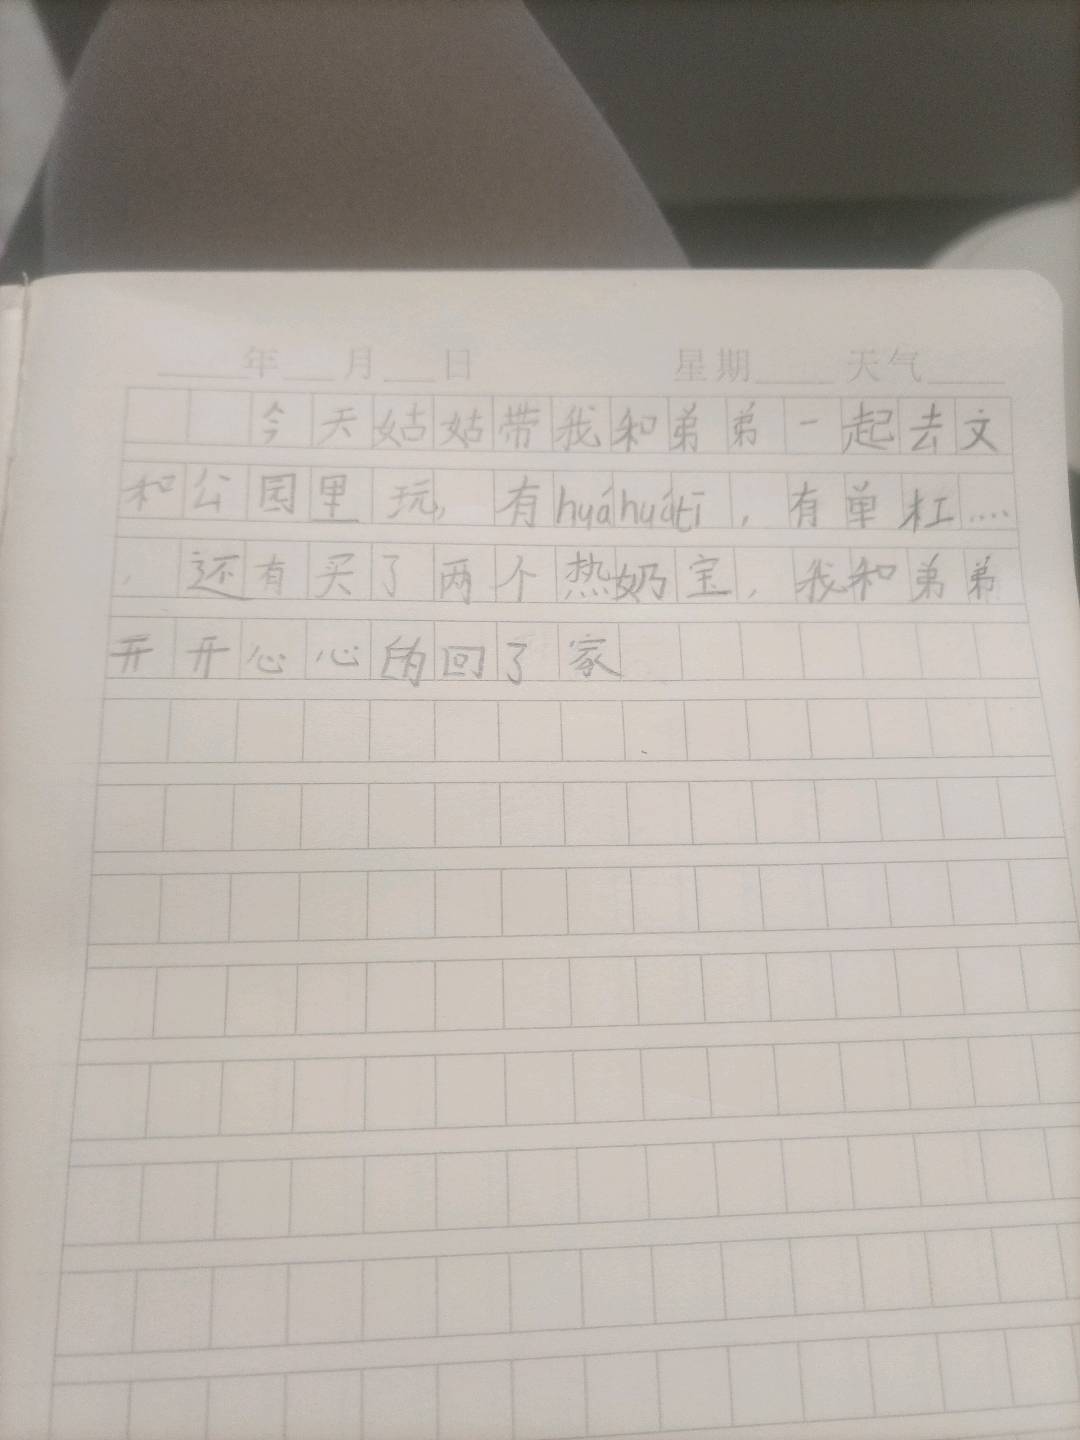 ____年___月___日 星期____ 天气____
今天姑姑带我和弟弟一起去文
和公园里玩,有huáhuátī,有单杠....
,还有买了两个热奶宝,我和弟弟
开开心心的回了家